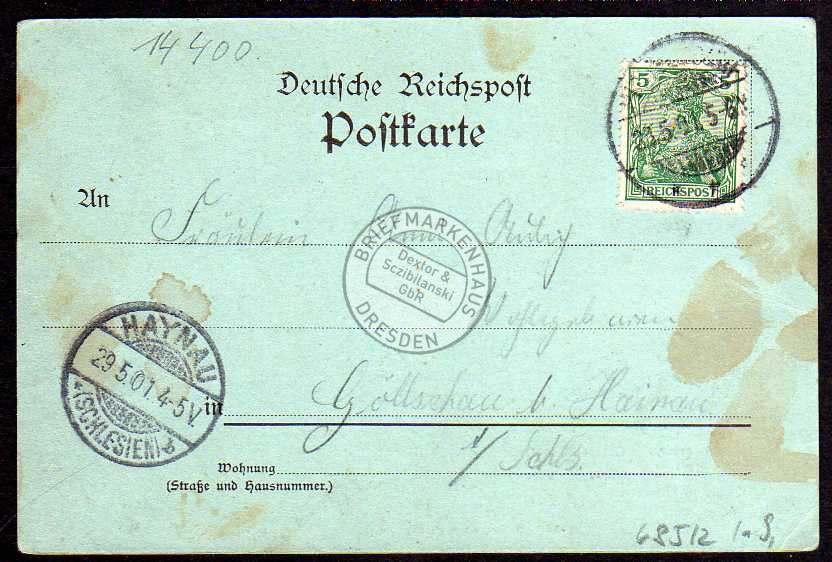 14400.
Deutsche Reichspost
Postkarte
5 5
REICHSPOST
5 01 5-6
An Fräulein Anna
BRIEFMARKENHAUS
Dextor &
Sczibilanski
GbR
DRESDEN
HAYNAU
29.5.01. 4-5V.
*(SCHLESIEN)a
in Göllschau b. Hainau
i/ Schles.
Wohnung
(Straße und Hausnummer.)
68512